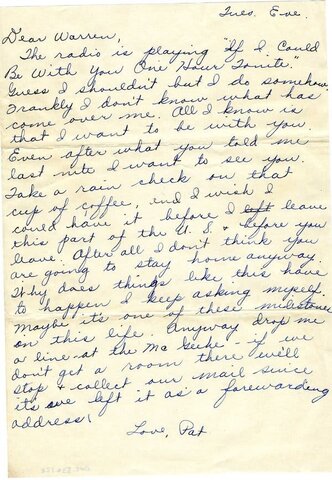 Tues. Eve.
Dear Warren,
The radio is playing "If I Could
Be With You One Hour Tonite."
Guess I shouldn't but I do somehow.
Frankly I don't know what has
come over me. All I know is
that I want to be with you.
Even after what you told me
last nite I want to see you.
Take a rain check on that
cup of coffee, and I wish I
could have it before I left leave
this part of the U.S. & before you
leave. After all I don't think you
are going to stay home anyway.
Why does things like this have
to happen I keep asking myself.
Maybe its one of these milestones
on this life. Anyway drop me
a line at the Mc - if we
don't get a room there we'll
stop & collect our mail since
its we left it as a forewarding
address!
Love, Pat